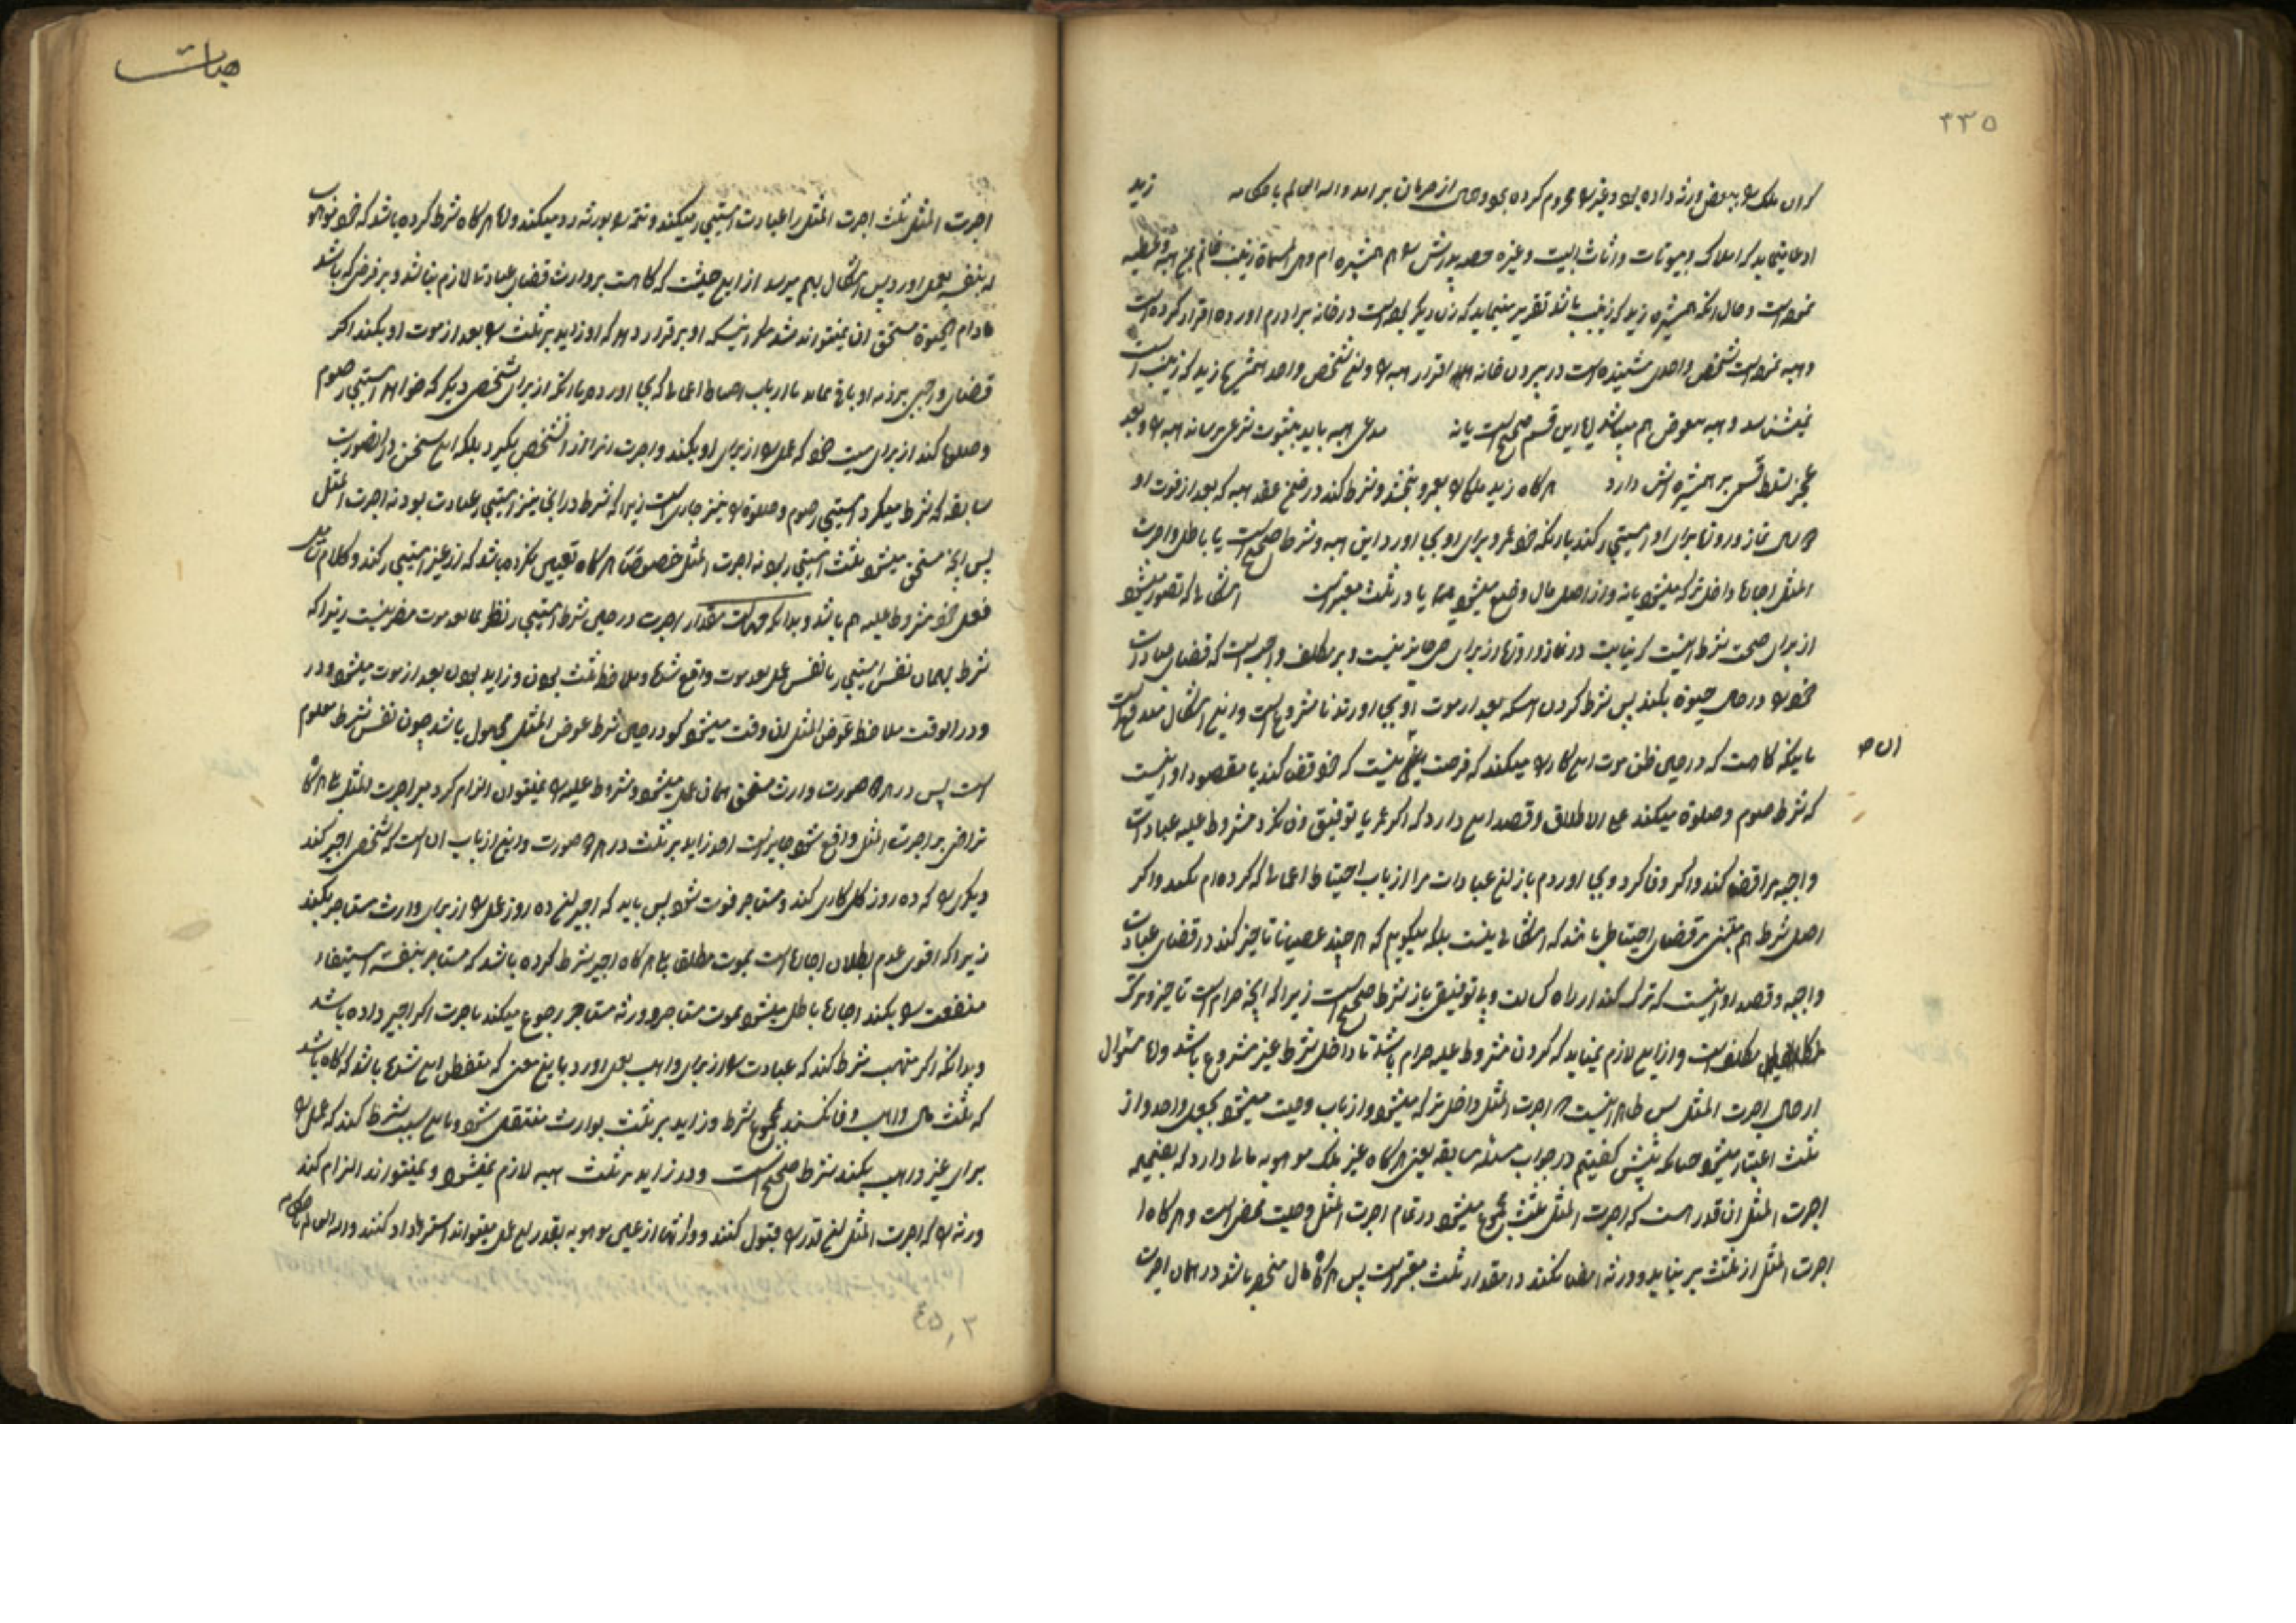 ۳۳۵
که ان ملک را ببعض ورثه داده بود و غیر را محروم کرده بود و حال از حرمان بر آمد والله العالم باحکامه زید
ادعا مینماید که املاک و بیوتات و اثاث البیت و غیره حصه پدرش را همشیره ام و هی المسماة زینب خانم بمن هبه و عطیه
نموده است و حال آنکه همشیره زید که زینب باشد تقریر مینماید که زن دیگر بوده است در خانه برادرم آورده اقرار کرده است
و هبه نموده است شخص واحدی شنیده است در بیرون خانه اقرار هبه را و شخص واحد همشیره زید که زینب است
نمیشناسد و هبه معوض هم میباشد این قسم صحیح است یا نه مدعی هبه باید بثبوت شرعی برساند هبه را و بعد
عجز تسلط قسمی بر همشیره اش دارد هر گاه زید ملکی را بعمرو ببخشد و شرط کند در ضمن عقد هبه که بعد از فوت او
نماز و روزه برای او استیجار کند یا آنکه خود عمرو برای او بجا آورد این هبه و شرط صحیح است یا باطل و اجرت
المثل اجاره داخل ترکه میشود یا نه و از اصل مال وضع میشود یا در ثلث معتبر است اشکالی که تصور میشود
از برای صحت شرط اینست که نیابت در نماز و روزه از برای حی جایز نیست و بر مکلف واجب است که قضای عبادات
خود را در حال حیوة بکند پس شرط کردن اینکه بعد از موت او بجا آورند نا مشروع است و این اشکال مندفع است
باینکه گاهست که در حین ظن موت این کار را میکند که فرصت نیست که خود قضا کند یا مقصود او اینست
که شرط صوم و صلوة میکند علی الاطلاق و قصد این دارد که اگر عمر یا توفیق وفا نکرد مشروط علیه عبادات
واجبه مرا قضا کند و اگر وفا کرد و بجا آوردم باز عبادات مرا از باب احتیاط اعمالی که کرده ام بکند و اگر
اصل شرط هم مبتنی بر قضای احتیاطی باشد که اشکالی نیست بلکه میگویم که هر چند عصیانا تاخیر کند در قضای عبادات
واجبه و قصد او اینست که ترک کند از راه کسالت و بی توفیقی باز شرط صحیح است زیرا که آنچه حرام است تاخیر و ترک
مکلف است و از این لازم نمیاید که کردن مشروط علیه حرام باشد تا داخل شرط غیر مشروع باشد و اما سئوال
از حال اجرت المثل پس ظاهر اینست که اجرت المثل داخل ترکه میشود و از باب وصیت میشود بجعل واحد و از
ثلث اعتبار میشود چنانکه پیش گفتیم در جواب مسئله سابقه یعنی هر گاه غیر ملک موهوبه مالی دارد که بضمیمه
اجرت المثل آن قدر است که اجرت المثل ثلث مجموع میشود در تمام اجرت المثل وصیت ممضی است و هر گاه
اجرت المثل از ثلث بر نیاید و ورثه امضا نکنند در مقدار ثلث معتبر است پس هر گاه مال منحصر باشد در همان اجرت
هبات
اجرت المثل ثلث اجرت المثل را عبادت استیجار میکند و تتمه را بورثه رد میکند و اما هر گاه شرط کرده باشد که خود موهوب
له بنفسه بعمل آورد پس اشکال بهم میرسد از این حیث که گاهست بر وارث قضای عبادت لازم نباشد و بر فرضی که باشد
مادام الحیوة مستحق آن نمیتواند شد مگر اینکه او بر قرار دهد که او زاید بر ثلث را بعد از موت او بکند اگر
قضای واجبی بر ذمه او باقی بماند یا از باب احتیاط اعمالی که بجا آورده یا آنکه از برای شخص دیگر که خواهد استیجار صوم
و صلوة کند از برای میت خود که عمل را از برای او بکند و اجرت آنرا از آن شخص بگیرد بلکه این سخن در آن صورت
سابقه که شرط میکرد استیجار صوم و صلوة را نیز جاری است زیرا که شرط در آنجا نیز استیجار عبادت بود نه اجرت المثل
پس آنچه مستحق میشود ثلث استیجار بود نه اجرت المثل خصوصا هر گاه تعیین نکرده باشد که از غیر استیجار کند و کلام شامل
فعل خود مشروط علیه هم باشد و بدانکه جهالت مقدار اجرت در حین شرط استیجار نظر بما بعد موت مضر نیست زیرا که
شرط بهمان نفس استیجار یا نفس عمل بعد موت واقع شده و ملاحظه ثلث بودن و زاید بودن بعد از موت میشود و در
و در آنوقت ملاحظه عوض المثل آن وقت میشود گو در حین شرط عوض المثل مجهول باشد چون نفس شرط معلوم
است پس در هر صورت وارث مستحق همان عمل میشود و مشروط علیه را نمیتوان الزام کرد بر اجرت المثل بلی هر گاه
تراضی بر اجرت المثل واقع شود جایز است اخذ زاید بر ثلث در هر صورت و این از باب آن است که شخصی اجیر کند
دیگری را که ده روز گل کاری کند و مستاجر فوت شود پس باید که اجیر ده روز عمل را از برای وارث مستاجر بکند
زیرا که اقوی عدم بطلان اجاره است بموت مطلقا بلی هر گاه اجیر شرط کرده باشد که مستاجر بنفسه استیفاء
منفعت را بکند اجاره باطل میشود بموت مستاجر و ورثه مستاجر رجوع میکند باجرت اگر اجیر داده باشد
و بدانکه اگر متهب شرط کند که عبادت را از برای واهب بعمل آورد باین معنی که متفطن این شده باشد که گاه باشد
که ثلث مال واهب وفا نکند بمجموع شرط و زاید بر ثلث بوارث منتقل شود و باین سبب شرط کند که عمل را
برای غیر واهب نکند شرط صحیح است و در زاید بر ثلث هبه لازم نمیشود و نمیتوانند الزام کند
ورثه را که اجرت المثل قدر را قبول کنند و وارثها از عین موهوبه بقدر این عمل میتوانند استرداد کنند والله العالم باحکامه